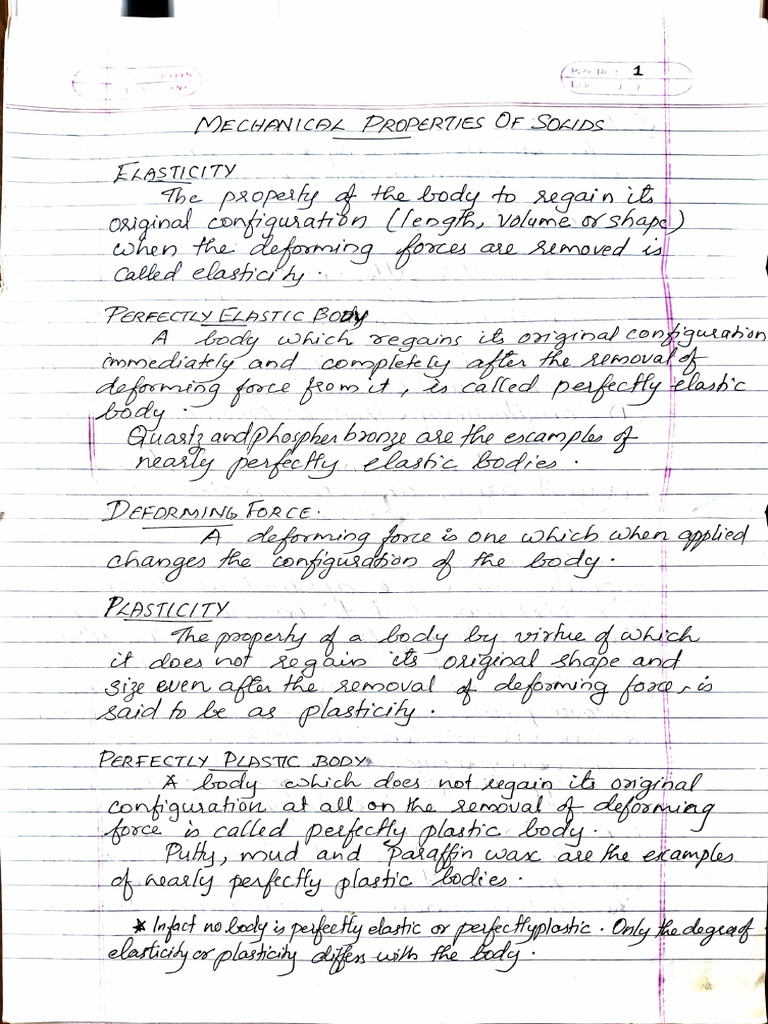 Page No: 1
MECHANICAL PROPERTIES OF SOLIDS
ELASTICITY
The property of the body to regain its
original configuration (length, volume or shape)
when the deforming forces are removed is
called elasticity.
PERFECTLY ELASTIC BODY
A body which regains its original configuration
immediately and completely after the removal of
deforming force from it, is called perfectly elastic
body.
Quartz and phospher bronze are the examples of
nearly perfectly elastic bodies.
DEFORMING FORCE.
A deforming force is one which when applied
changes the configuration of the body.
PLASTICITY
The property of a body by virtue of which
it does not regain its original shape and
size even after the removal of deforming force, is
said to be as plasticity.
PERFECTLY PLASTIC BODY
A body which does not regain its original
configuration at all on the removal of deforming
force is called perfectly plastic body.
Putty, mud and paraffin wax are the examples
of nearly perfectly plastic bodies.
* Infact no body is perfectly elastic or perfectly plastic. Only the degree of
elasticity or plasticity differs with the body.